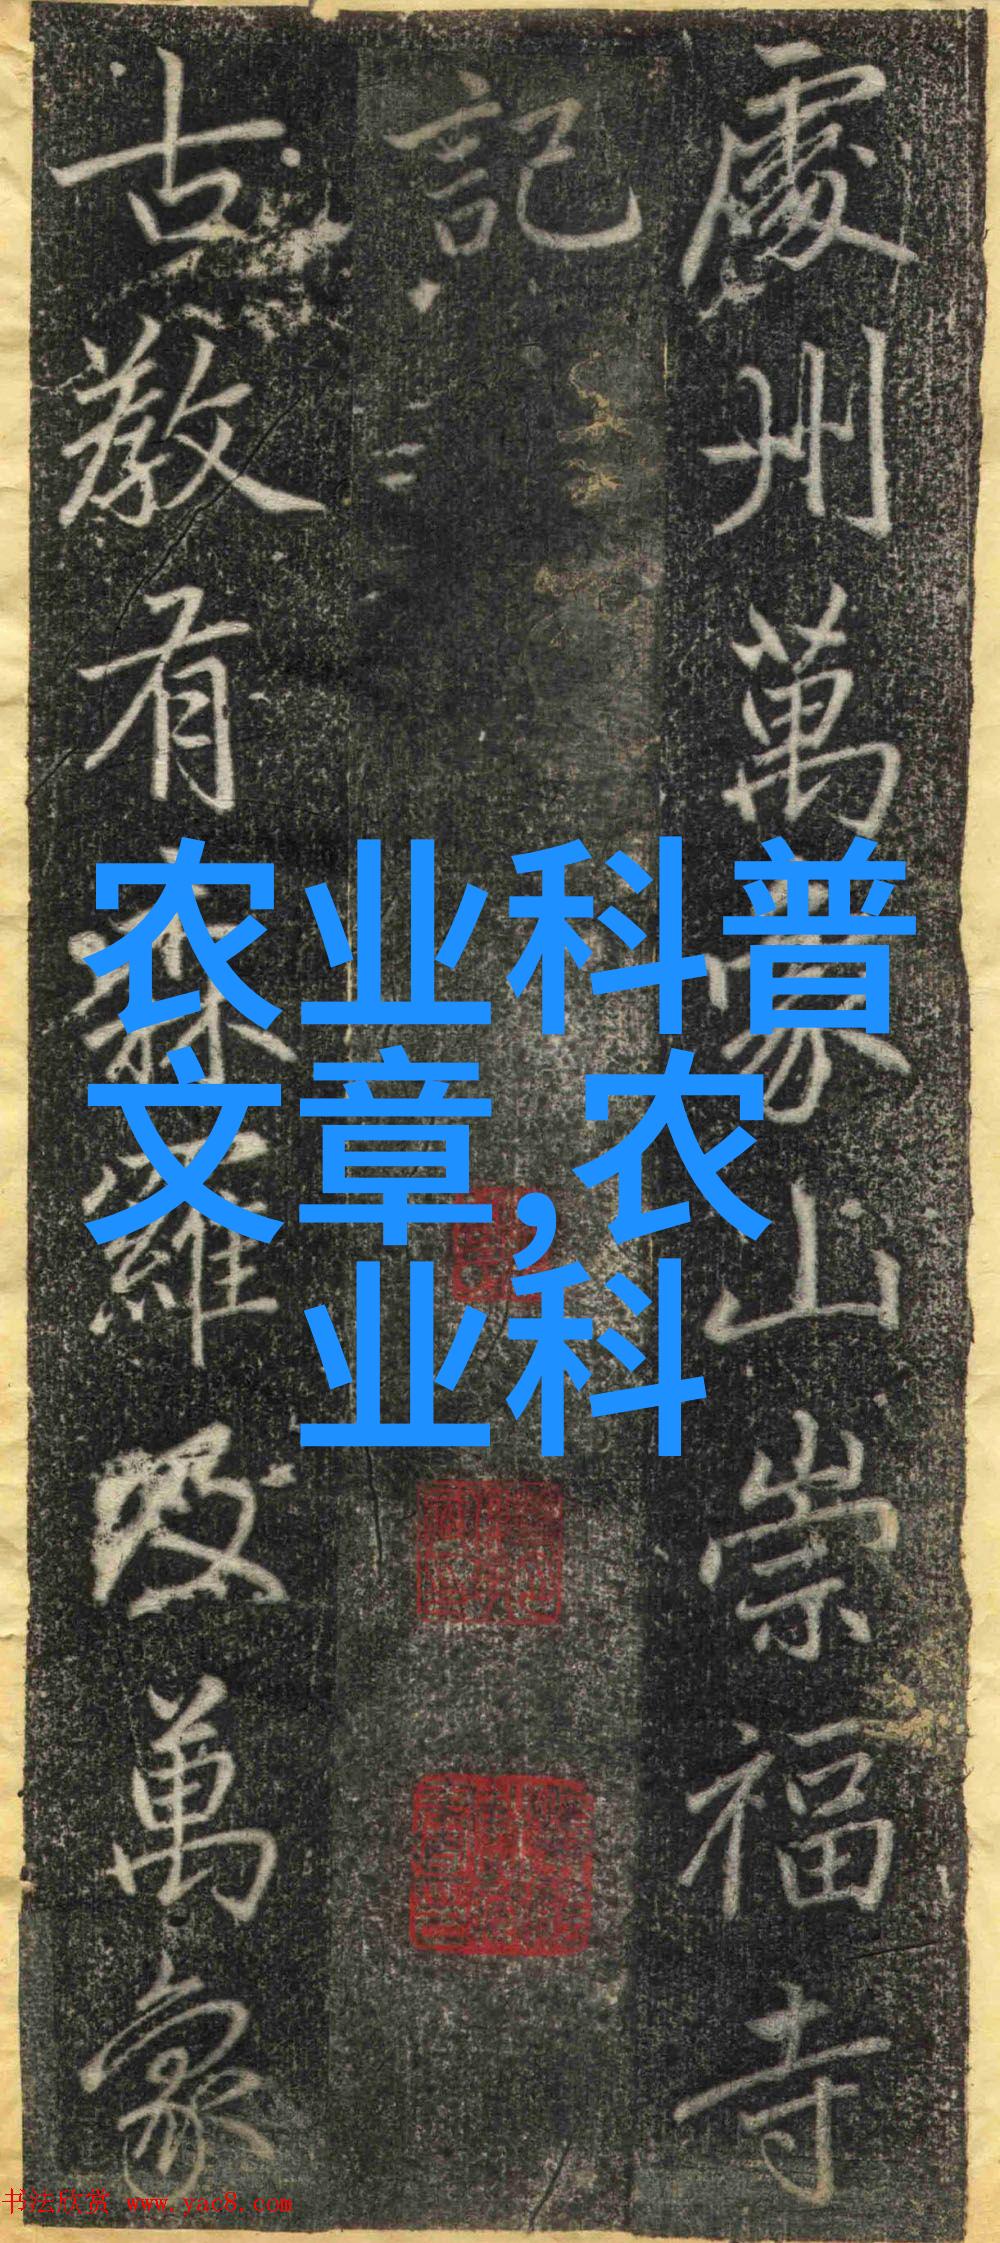 處州萬象山崇福寺
記
古教有森羅及萬象
农业科普
文章,农
业科
书法欣赏 www.yac8.com